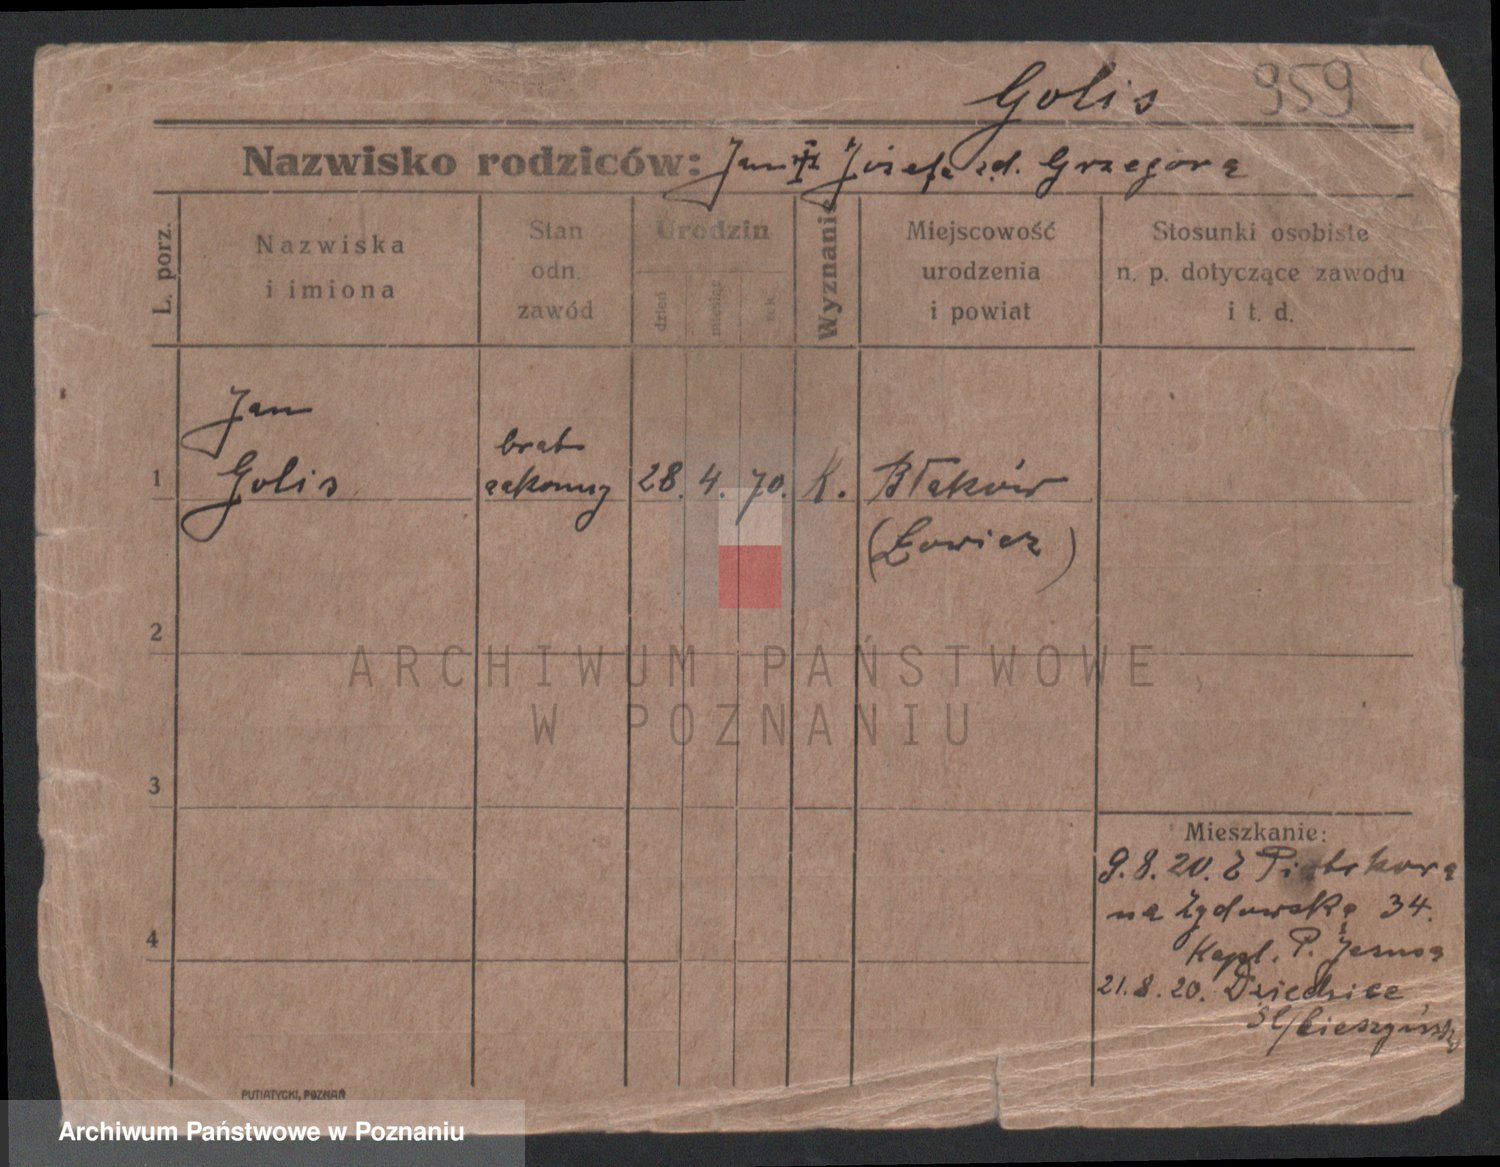 Golis 959
Nazwisko rodziców: Jan Józefa zd. Grzegorą
L. porz.
Nazwiska
i imiona
Stan
odn.
zawód
Urodzin
dzień
miesiąc
rok
Wyznanie
Miejscowość
urodzenia
i powiat
Stosunki osobiste
n. p. dotyczące zawodu
i t. d.
Jan
1 Golis
brat
zakonny
28. 4. 70. K. Błaków
(Łowicz)
2
3
4
Mieszkanie:
9.8.20. Z Piotrkowa
na Żydowską 34.
Kapl. P. Jezusa
21.8.20. Dziedzice
Śl/Cieszyński
PUTIATYCKI, POZNAŃ
ARCHIWUM PAŃSTWOWE
W POZNANIU
Archiwum Państwowe w Poznaniu